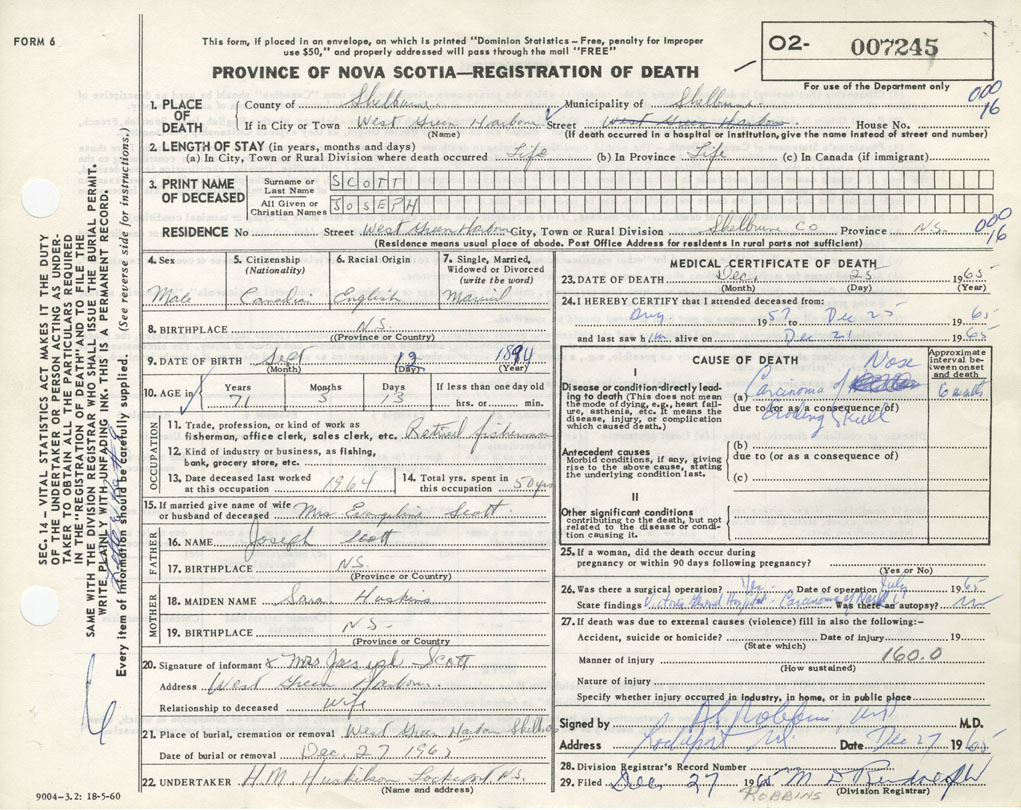 FORM 6
This form, if placed in an envelope, on which is printed "Dominion Statistics – Free, penalty for improper
use $50," and properly addressed will pass through the mail "FREE"
O2- 007245
PROVINCE OF NOVA SCOTIA—REGISTRATION OF DEATH
For use of the Department only
1. PLACE OF DEATH County of Shelburne Municipality of Shelburne 000
If in City or Town West Green Harbour Street West Green Harbour House No. 16
(Name) (If death occurred in a hospital or institution, give the name instead of street and number)
2. LENGTH OF STAY (in years, months and days)
(a) In City, Town or Rural Division where death occurred Life (b) In Province Life (c) In Canada (if immigrant).
3. PRINT NAME OF DECEASED
Surname or Last Name SCOTT
All Given or Christian Names JOSEPH
RESIDENCE No Street West Green Harbour City, Town or Rural Division Shelburne Co Province N.S. 000 16
(Residence means usual place of abode. Post Office Address for residents in rural parts not sufficient)
4. Sex Male
5. Citizenship (Nationality) Canadian
6. Racial Origin English
7. Single, Married, Widowed or Divorced (write the word) Married
8. BIRTHPLACE N.S.
(Province or Country)
9. DATE OF BIRTH Sept 12 1894
(Month) (Day) (Year)
10. AGE in Years 71 Months 3 Days 13 If less than one day old hrs. or min.
OCCUPATION
11. Trade, profession, or kind of work as fisherman, office clerk, sales clerk, etc. Retired fisherman
12. Kind of industry or business, as fishing, bank, grocery store, etc.
13. Date deceased last worked at this occupation 1964
14. Total yrs. spent in this occupation 50 yrs
15. If married give name of wife or husband of deceased Mrs Evangeline Scott
FATHER
16. NAME Joseph Scott
17. BIRTHPLACE N.S.
(Province or Country)
MOTHER
18. MAIDEN NAME Sara Huskins
19. BIRTHPLACE N.S.
(Province or Country)
20. Signature of informant x Mrs Joseph Scott
Address West Green Harbour
Relationship to deceased wife
21. Place of burial, cremation or removal West Green Harbour Shelb. Co
Date of burial or removal Dec. 27 1965
22. UNDERTAKER H.M. Huskilson Lockeport N.S.
(Name and address)
9004–3.2: 18-5-60
MEDICAL CERTIFICATE OF DEATH
23. DATE OF DEATH Dec. 25 1965
(Month) (Day) (Year)
24. I HEREBY CERTIFY that I attended deceased from:
Aug. 1957 to Dec 25 1965
and last saw him alive on Dec 21 1965
CAUSE OF DEATH
Approximate interval between onset and death
I
Disease or condition directly leading to death (This does not mean the mode of dying, e.g., heart failure, asthenia, etc. It means the disease, injury, or complication which caused death.)
(a) Carcinoma of Nose 6 mths
due to (or as a consequence of)
Eroding Skull
Antecedent causes
Morbid conditions, if any, giving rise to the above cause, stating the underlying condition last.
(b)
due to (or as a consequence of)
(c)
II
Other significant conditions
contributing to the death, but not related to the disease or condition causing it.
25. If a woman, did the death occur during pregnancy or within 90 days following pregnancy?
(Yes or No)
26. Was there a surgical operation? Yes Date of operation July 1965
State findings Victoria General Hospital - Carcinoma of Was there an autopsy? no
27. If death was due to external causes (violence) fill in also the following:–
Accident, suicide or homicide? Date of injury 19
(State which)
Manner of injury 160.0
(How sustained)
Nature of injury
Specify whether injury occurred in industry, in home, or in public place
Signed by Robbins MD M.D.
Address Lockeport NS Date Dec 27 1965
28. Division Registrar's Record Number
29. Filed Dec 27 1965
(Division Registrar)
ROBBINS
SEC. 14 – VITAL STATISTICS ACT MAKES IT THE DUTY
OF THE UNDERTAKER OR PERSON ACTING AS UNDER-
TAKER TO OBTAIN ALL THE PARTICULARS REQUIRED
IN THE "REGISTRATION OF DEATH" AND TO FILE THE
SAME WITH THE DIVISION REGISTRAR WHO SHALL ISSUE THE BURIAL PERMIT.
WRITE PLAINLY WITH UNFADING INK. THIS IS A PERMANENT RECORD.
Every item of information should be carefully supplied. (See reverse side for instructions.)